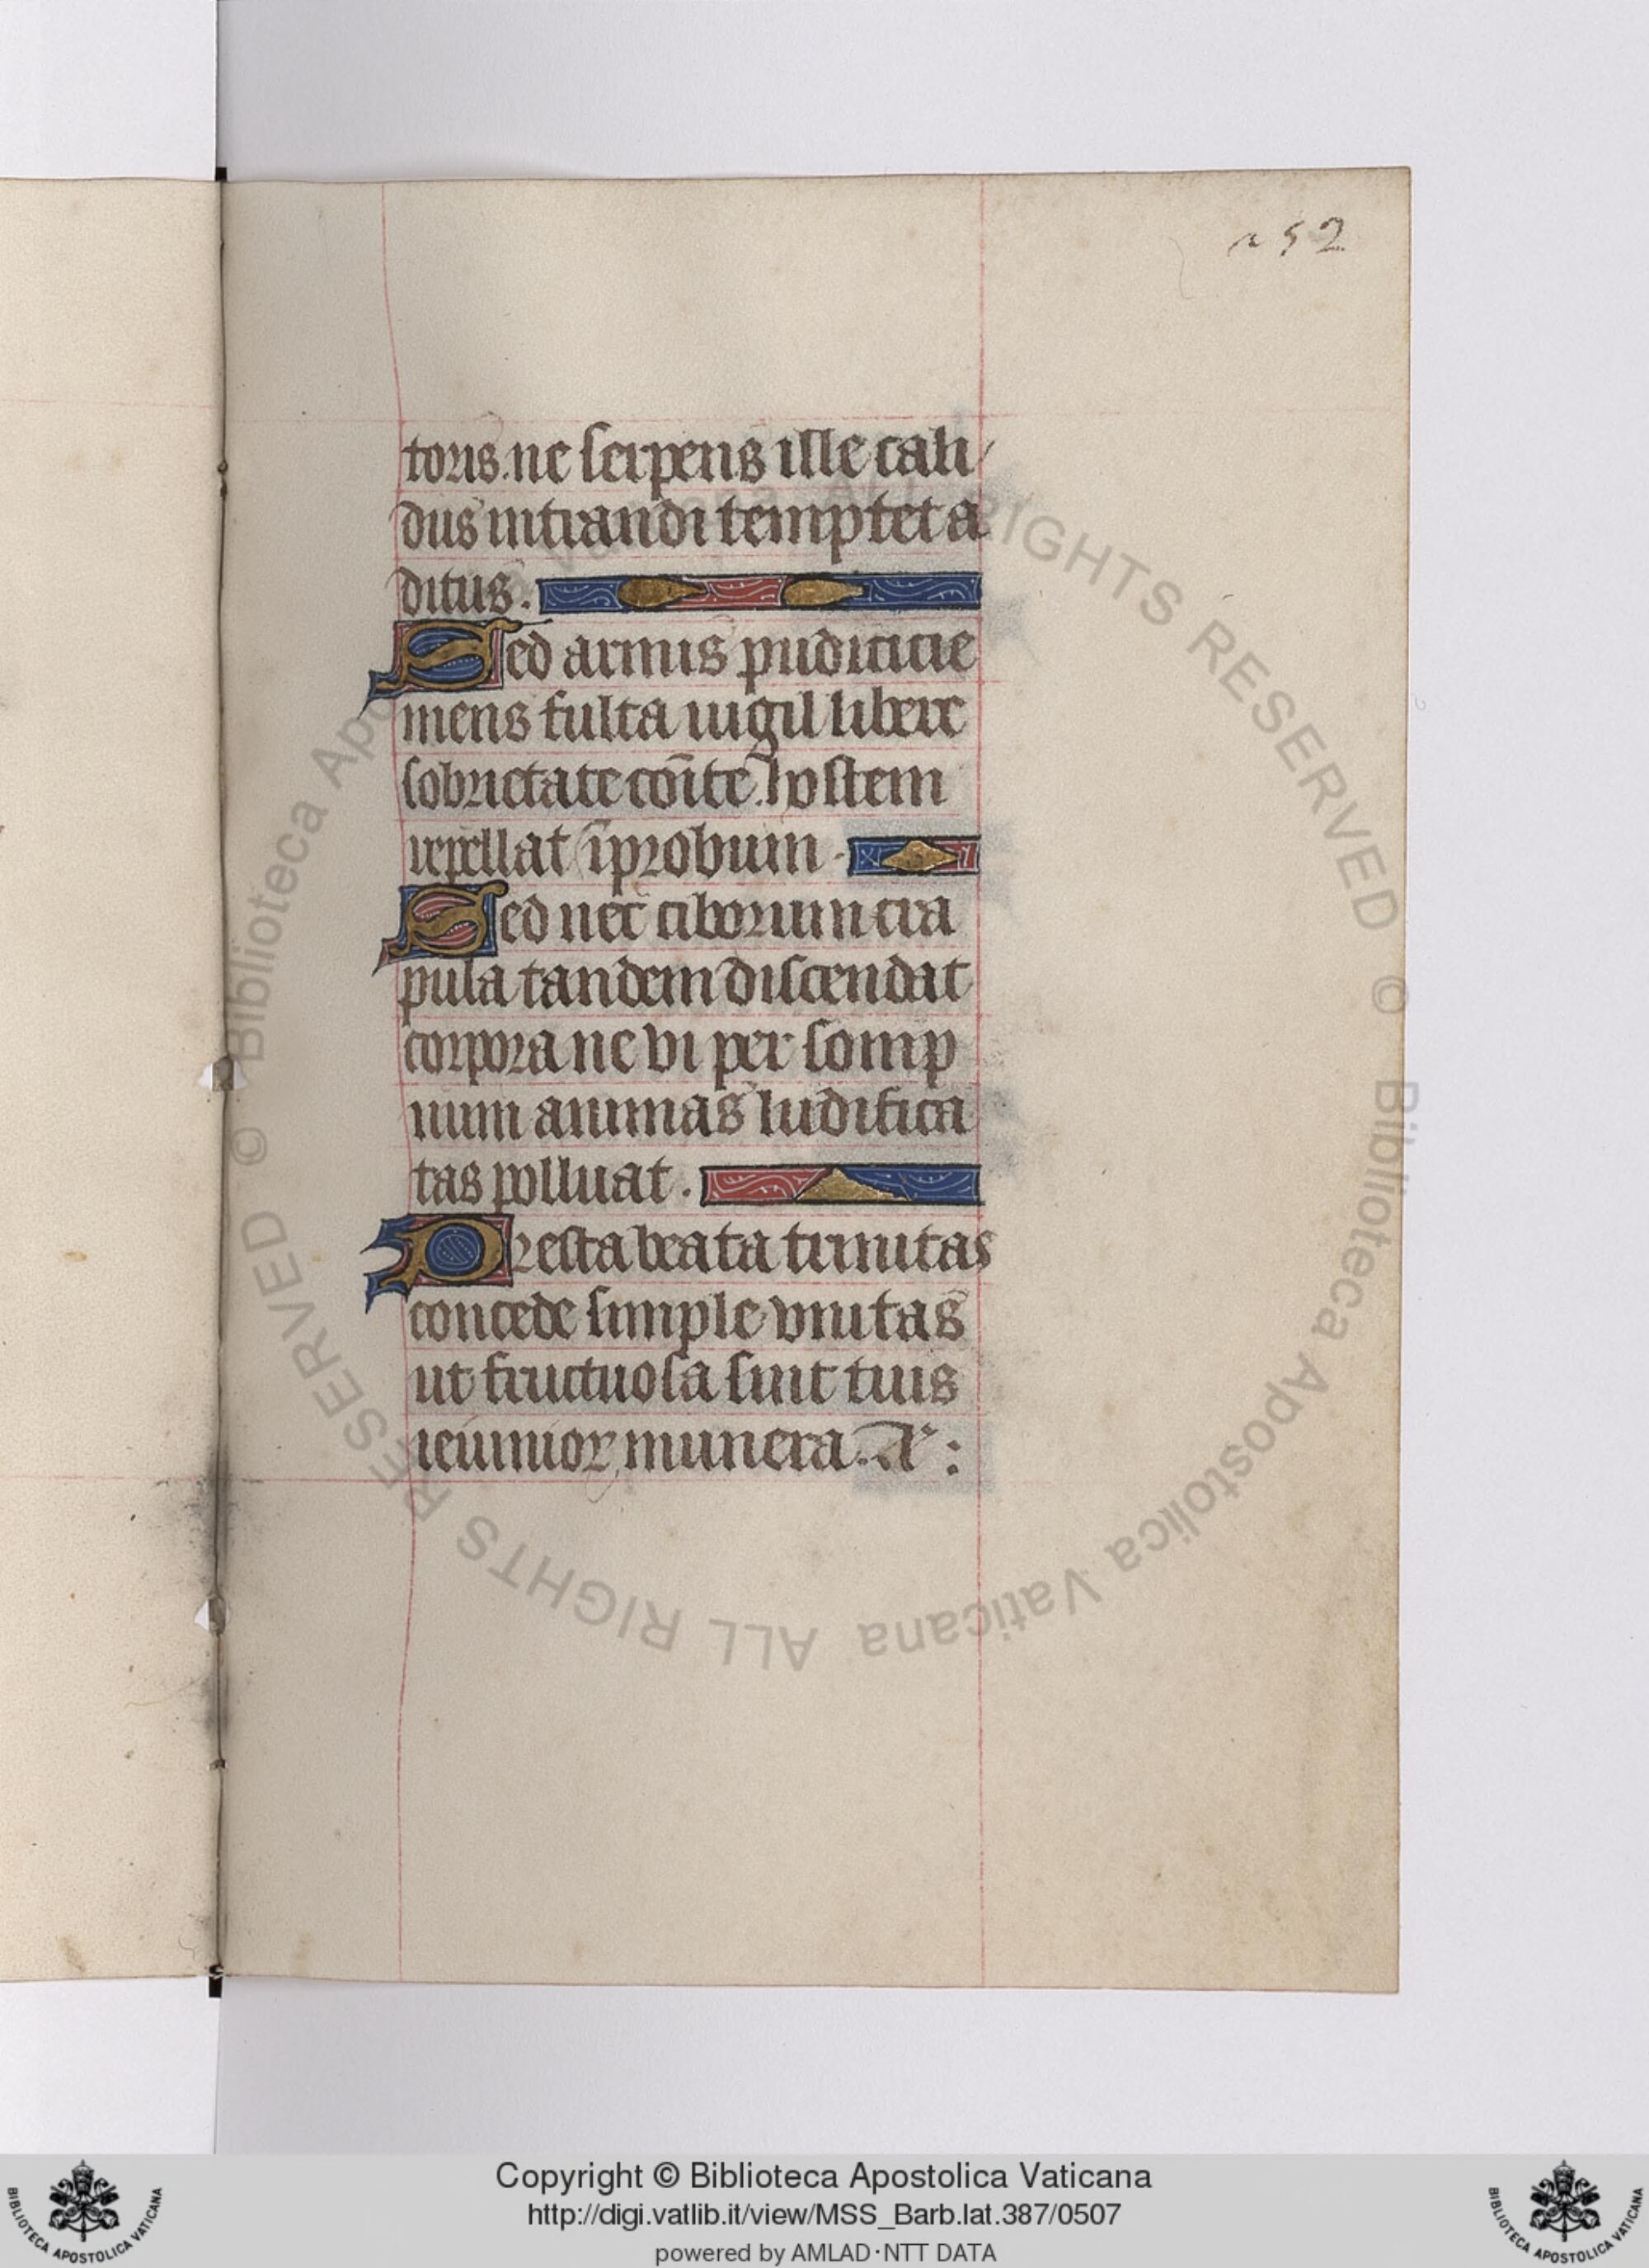 252
toris. ne serpens ille cali
dus intrandi temptet a
ditus.
Sed armis pudicicie
mens fulta uigil libere
sobrietate cōite. hostem
repellat īprobum.
Sed nec ciborum cra
pula tandem discendat
corpora ne vi per somp
num animas ludifica
tas polluat.
Presta beata trinitas
concede simple vnitas
ut fructuosa sint tuis
ieiuniorꝝ munera. A:
© Biblioteca Apostolica Vaticana ALL RIGHTS RESERVED © Biblioteca Apostolica Vaticana ALL RIGHTS RESERVED
Copyright © Biblioteca Apostolica Vaticana
http://digi.vatlib.it/view/MSS_Barb.lat.387/0507
powered by AMLAD·NTT DATA
BIBLIOTECA APOSTOLICA VATICANA
BIBLIOTECA APOSTOLICA VATICANA